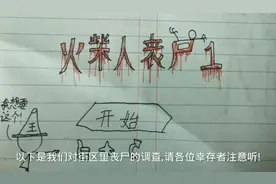 火柴人丧尸1
我想要
这个!
开始
王
以下是我们对街区里丧尸的调查,请各位幸存者注意听!